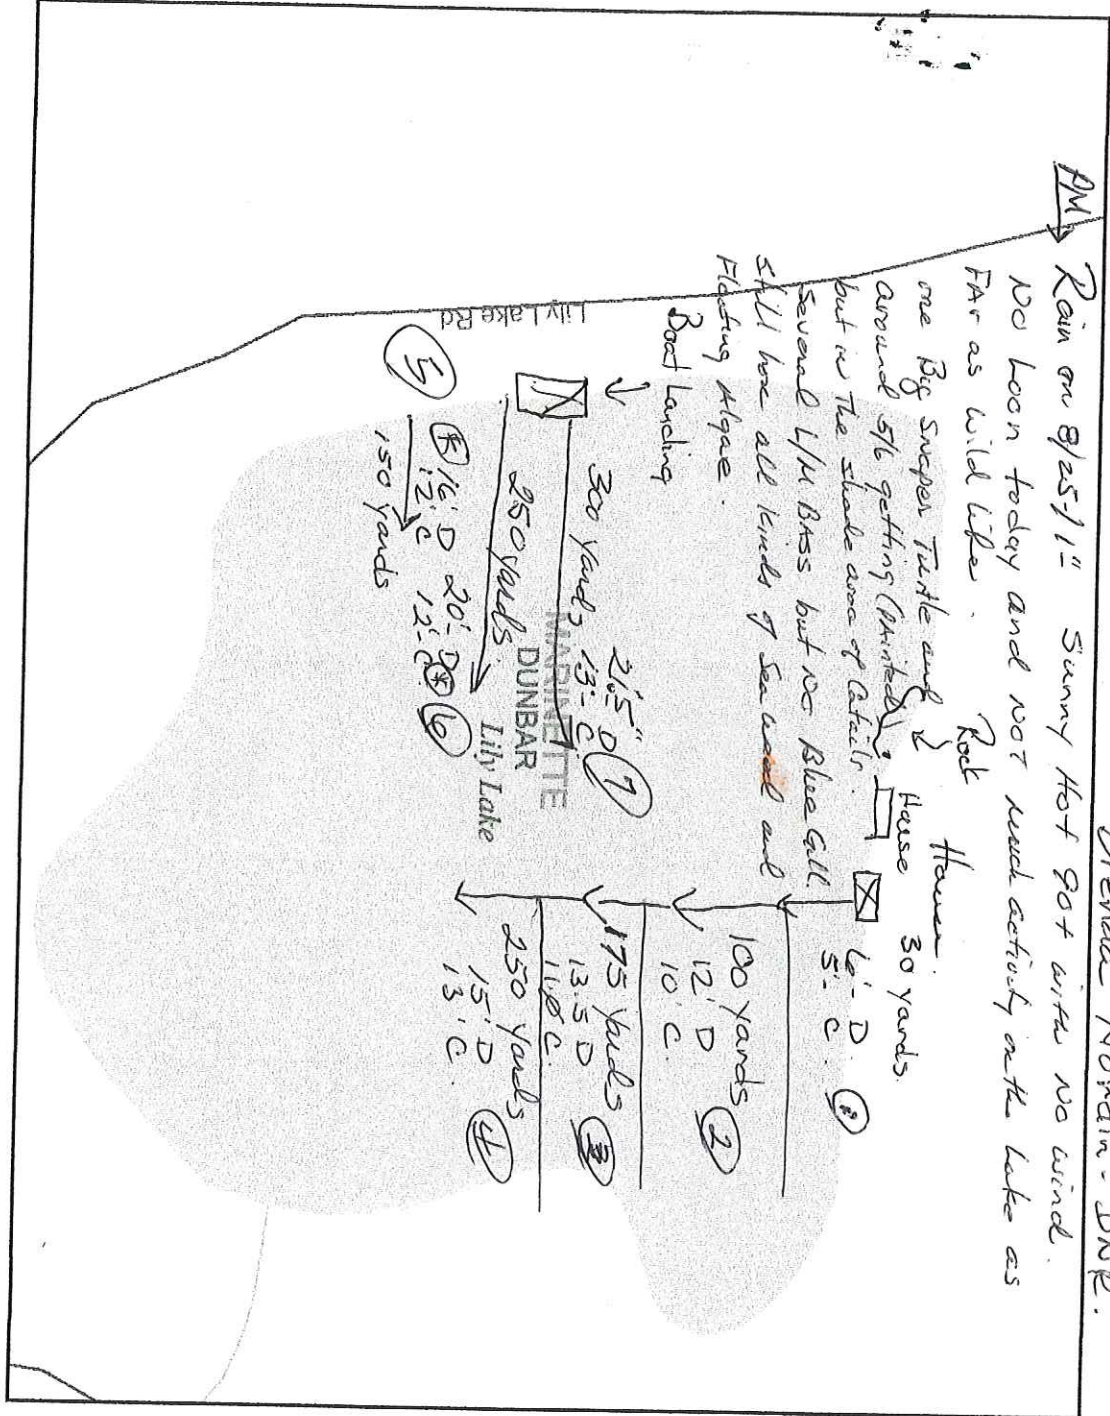 Norman - DNR.
PM → Rain on 8/25/1" Sunny Hot 90+ with No wind.
No Loon today and NOT much activity on the Lake as
FAr as wild life.
one Big Snaper Turtle and
around 5/6 getting (PAinted)
but in The shade area of Catails.
Several L/M BASS but NO Blue Gill.
Still have all kinds of Sea weed and
Floating Algae.
Rock
House
House.
30 yards.
Boat Landing
Lily Lake Rd
6'-D.
5'-C.
100 yards
12' D
10' C.
2
175 yards
13.5 D
11.0 C.
3
250 yards
15' D
13' C.
4
300 yards
21'.5" D
13'- C.
7
MARINETTE
DUNBAR
Lily Lake
250 yards.
5
16' D
12' C
150 yards
20'- D
12'- C
6